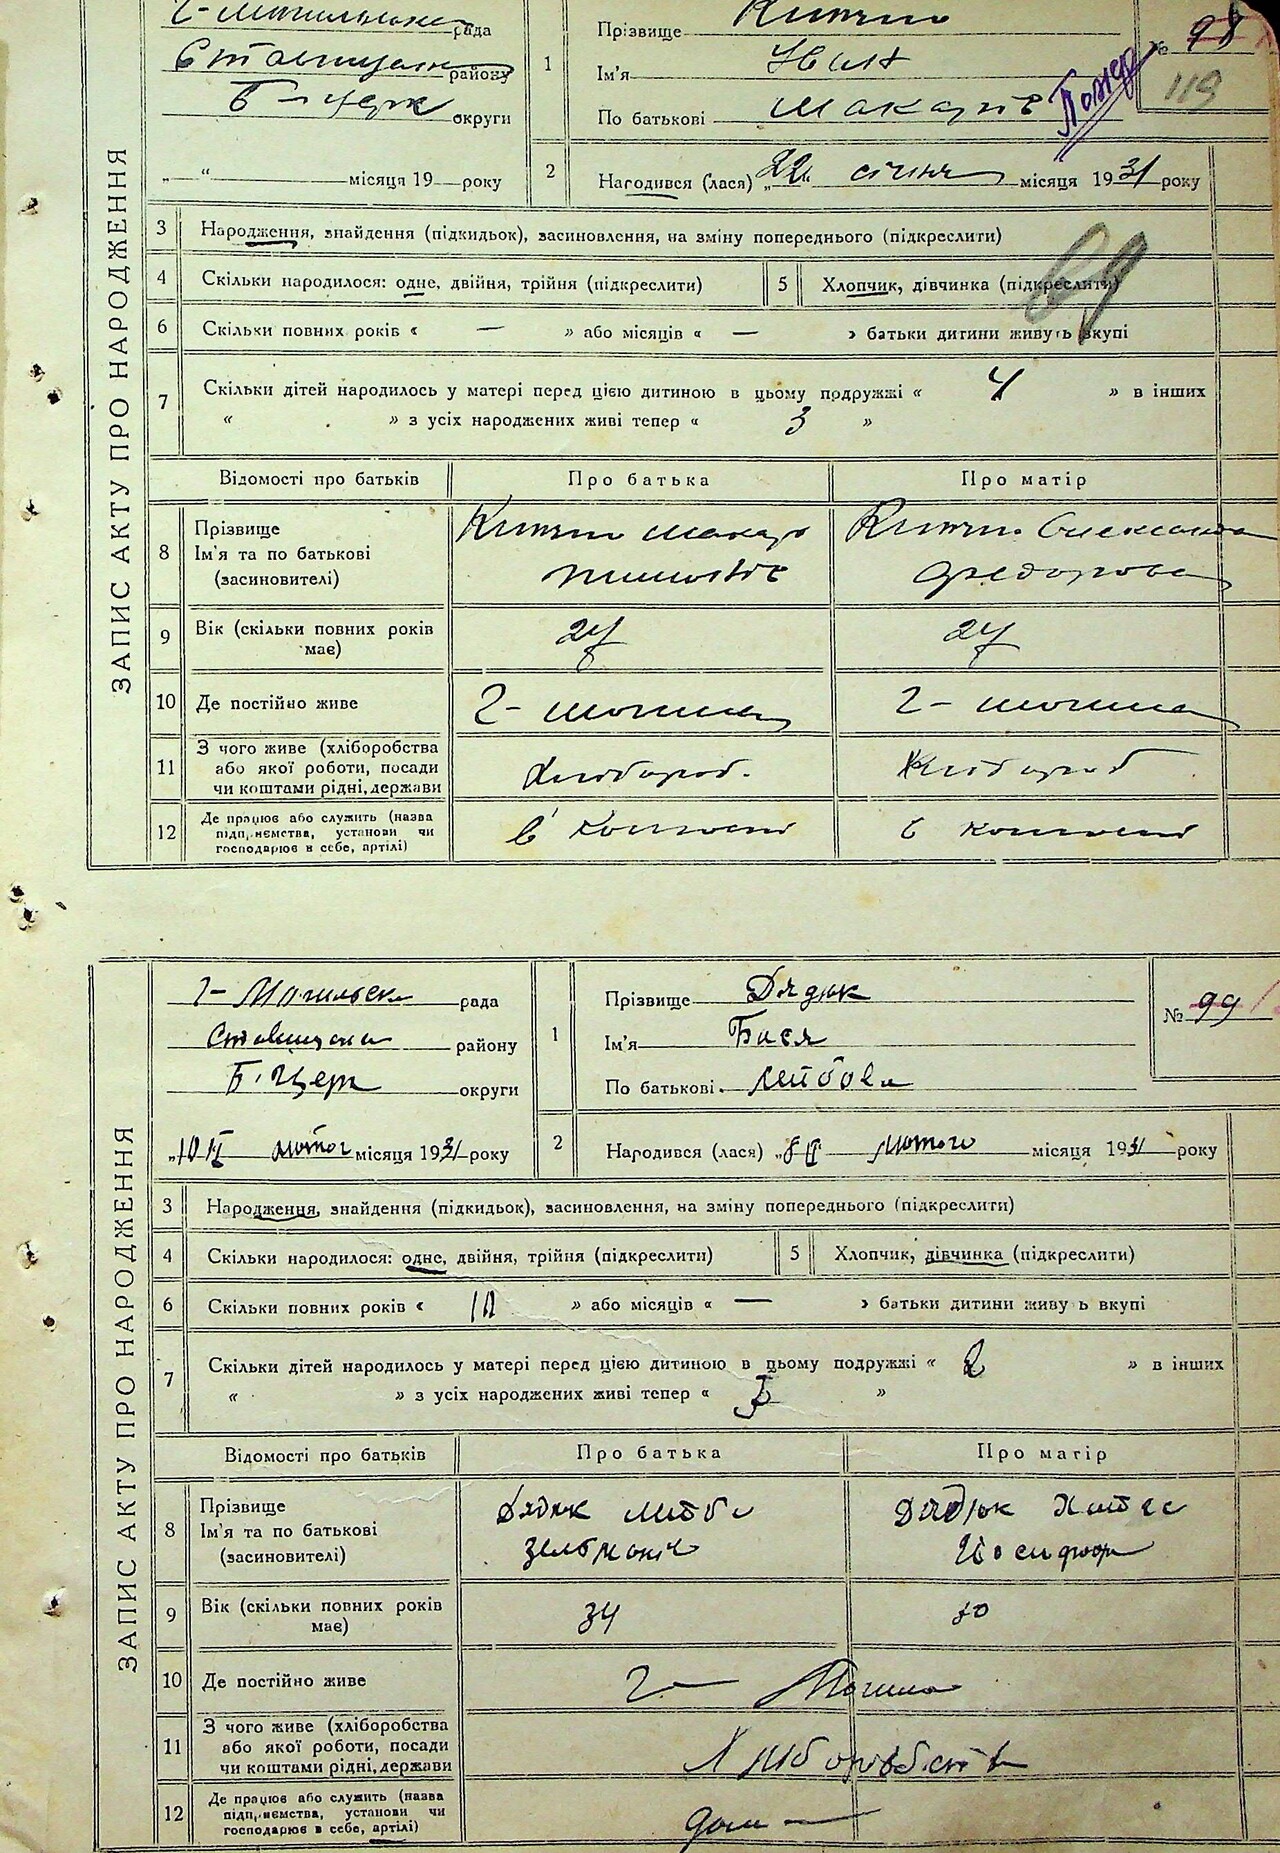 ЗАПИС АКТУ ПРО НАРОДЖЕННЯ
рада
району
Б-церк округи
„—“ місяця 19— року
1
Прізвище
Ім'я Іван
По батькові Макарів
№ 98
119
2
Народився (лася) „22“ січня місяця 1931 року
3 Народження, знайдення (підкидьок), засиновлення, на зміну попереднього (підкреслити)
4 Скільки народилося: одне, двійня, трійня (підкреслити)
5 Хлопчик, дівчинка (підкреслити)
6 Скільки повних років « — » або місяців « — » батьки дитини живуть вкупі
7 Скільки дітей народилось у матері перед цією дитиною в цьому подружжі « 4 » в інших
« » з усіх народжених живі тепер « 3 »
Відомості про батьків Про батька Про матір
8 Прізвище
Ім'я та по батькові
(засиновителі)
Макар
Олександра
Федорова
9 Вік (скільки повних років має) 27 27
10 Де постійно живе
11 З чого живе (хліборобства або якої роботи, посади чи коштами рідні, держави
Хлібороб. Хлібороб
12 Де працює або служить (назва підприємства, установи чи господарює в себе, артілі)
в колгоспі в колгоспі
ЗАПИС АКТУ ПРО НАРОДЖЕННЯ
Г-Могильська рада
Ставищан району
Б. Церк округи
„10 II лютог місяця 1931 року
1
Прізвище Дядюк
Ім'я Бася
По батькові Лейбова
№ 99
2
Народився (лася) „8 II лютого місяця 1931 року
3 Народження, знайдення (підкидьок), засиновлення, на зміну попереднього (підкреслити)
4 Скільки народилося: одне, двійня, трійня (підкреслити)
5 Хлопчик, дівчинка (підкреслити)
6 Скільки повних років « 10 » або місяців « — » батьки дитини живу ь вкупі
7 Скільки дітей народилось у матері перед цією дитиною в цьому подружжі « 2 » в інших
« » з усіх народжених живі тепер « 3 »
Відомості про батьків Про батька Про матір
8 Прізвище
Ім'я та по батькові
(засиновителі)
Дядюк Лейба
Зельманів
Дядюк
9 Вік (скільки повних років має) 34 30
10 Де постійно живе
Г— Могила
11 З чого живе (хліборобства або якої роботи, посади чи коштами рідні, держави
Хліборобств
12 Де працює або служить (назва підприємства, установи чи господарює в себе, артілі)
дома —